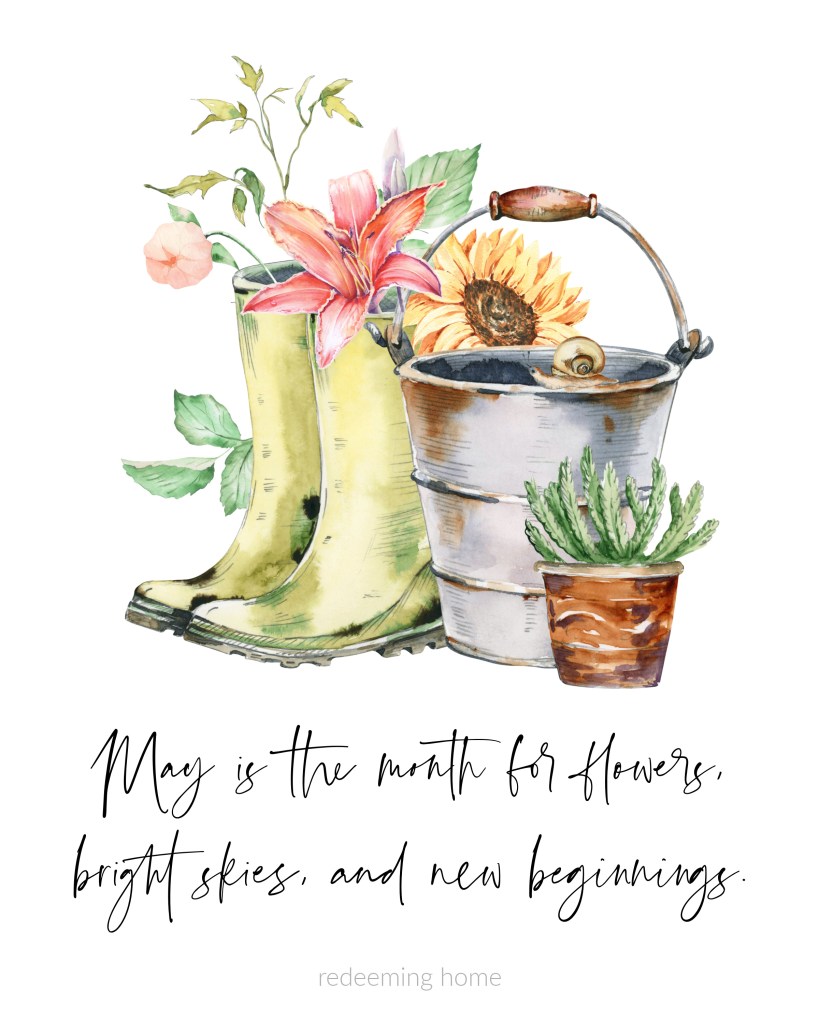 May is the month for flowers,
bright skies, and new beginnings.
redeeming home